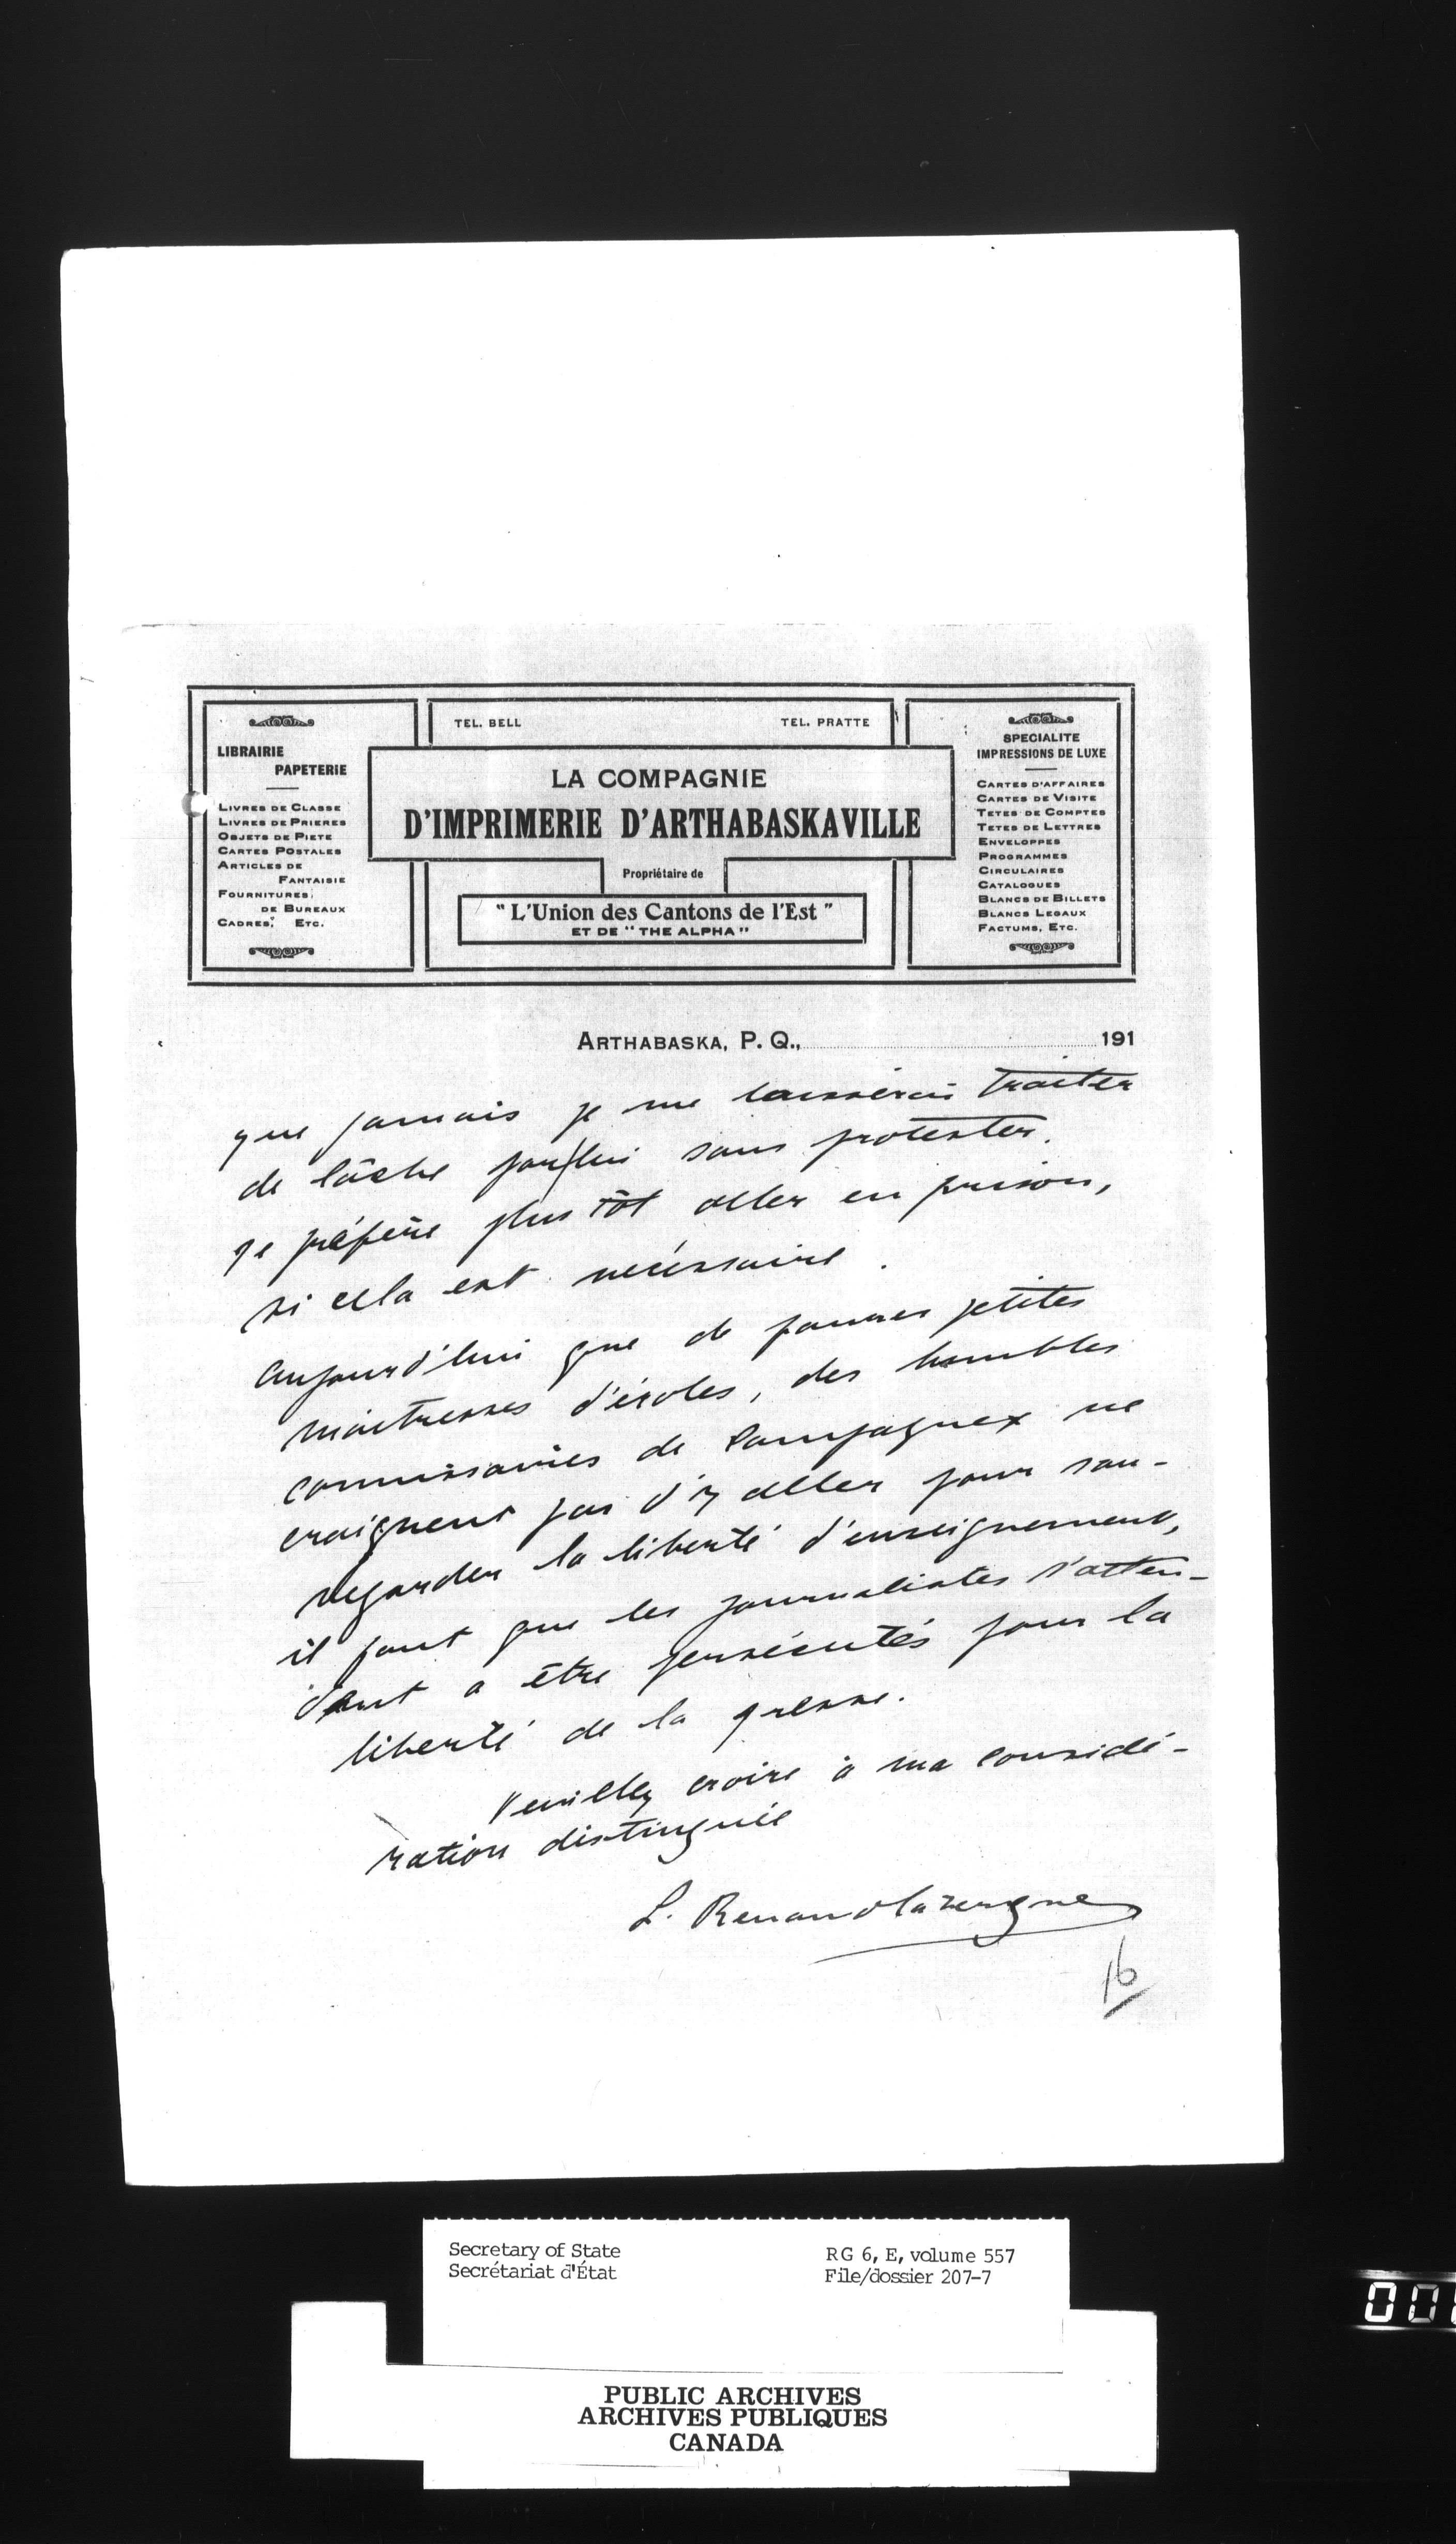 LIBRAIRIE
PAPETERIE
LIVRES DE CLASSE
LIVRES DE PRIERES
OBJETS DE PIETE
CARTES POSTALES
ARTICLES DE
FANTAISIE
FOURNITURES
DE BUREAUX
CADRES, ETC.
TEL. BELL
TEL. PRATTE
LA COMPAGNIE
D'IMPRIMERIE D'ARTHABASKAVILLE
Propriétaire de
"L'Union des Cantons de l'Est"
ET DE "THE ALPHA"
SPECIALITE
IMPRESSIONS DE LUXE
CARTES D'AFFAIRES
CARTES DE VISITE
TETES DE COMPTES
TETES DE LETTRES
ENVELOPPES
PROGRAMMES
CIRCULAIRES
CATALOGUES
BLANCS DE BILLETS
BLANCS LEGAUX
FACTUMS, ETC.
ARTHABASKA, P. Q., 191
que jamais je me laisserai traiter
de lâche par lui sans protester.
Je préfère plus tôt aller en prison,
si cela est nécessaire.
Aujourd'hui que de pauvres petites
maîtresses d'écoles, des humbles
commissaires de campagnes ne
craignent pas d'y aller pour sau-
vegarder la liberté d'enseignement,
il faut que les journalistes s'atten-
dent a être persécutés pour la
liberté de la presse.
Veuillez croire à ma considé-
ration distinguée
L. Renaud Lavergne
16
Secretary of State
Secrétariat d'État
RG 6, E, volume 557
File/dossier 207-7
PUBLIC ARCHIVES
ARCHIVES PUBLIQUES
CANADA